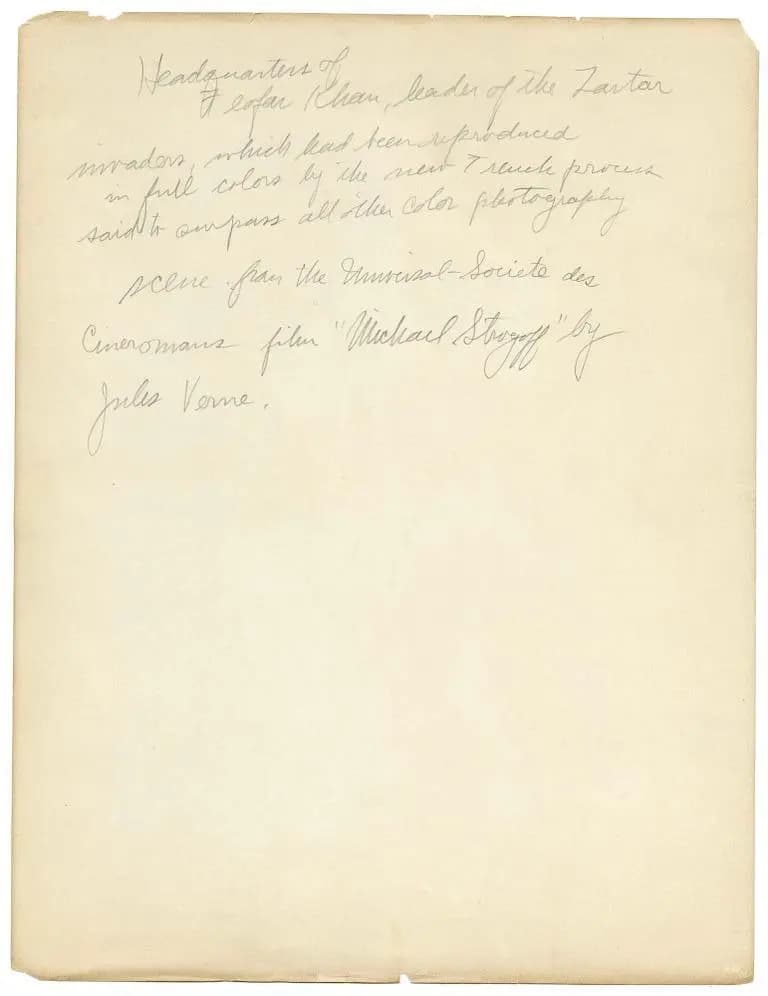 Headquarters of
Feofar Khan, leader of the Tartar
invaders, which had been reproduced
in full colors by the new French process
said to surpass all other color photography
scene from the Universal-Societe des
Cineromans film "Michael Strogoff" by
Jules Verne.